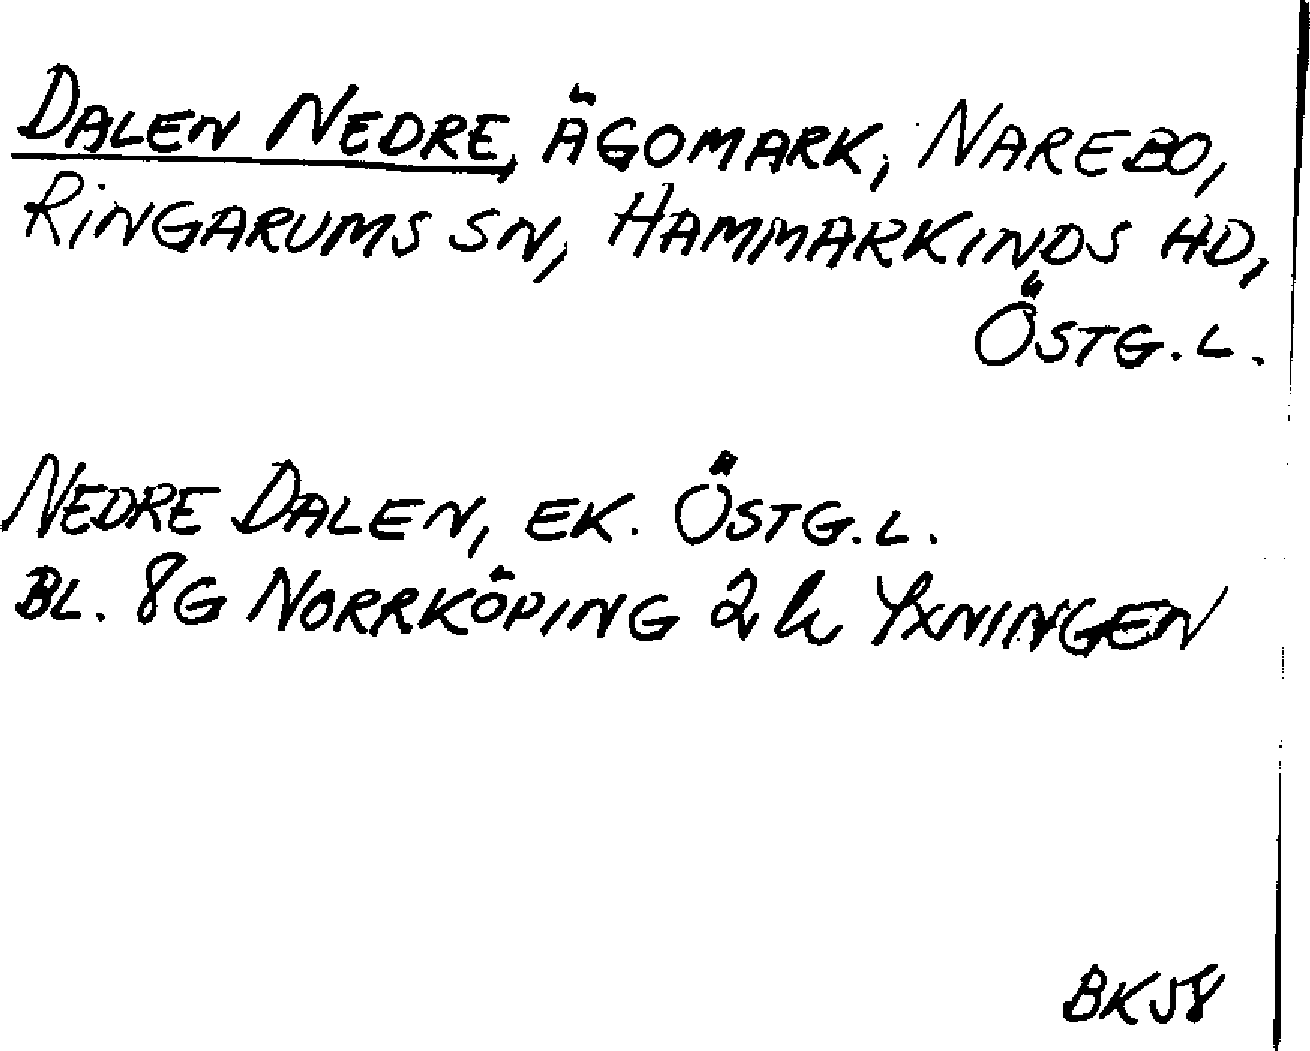 DALEN NEDRE, ÄGOMARK, NAREBO,
RINGARUMS SN, HAMMARKINDS HD,
ÖSTG.L.
NEDRE DALEN, EK. ÖSTG.L.
BL. 8G NORRKÖPING 2h YXNINGEN
BK58